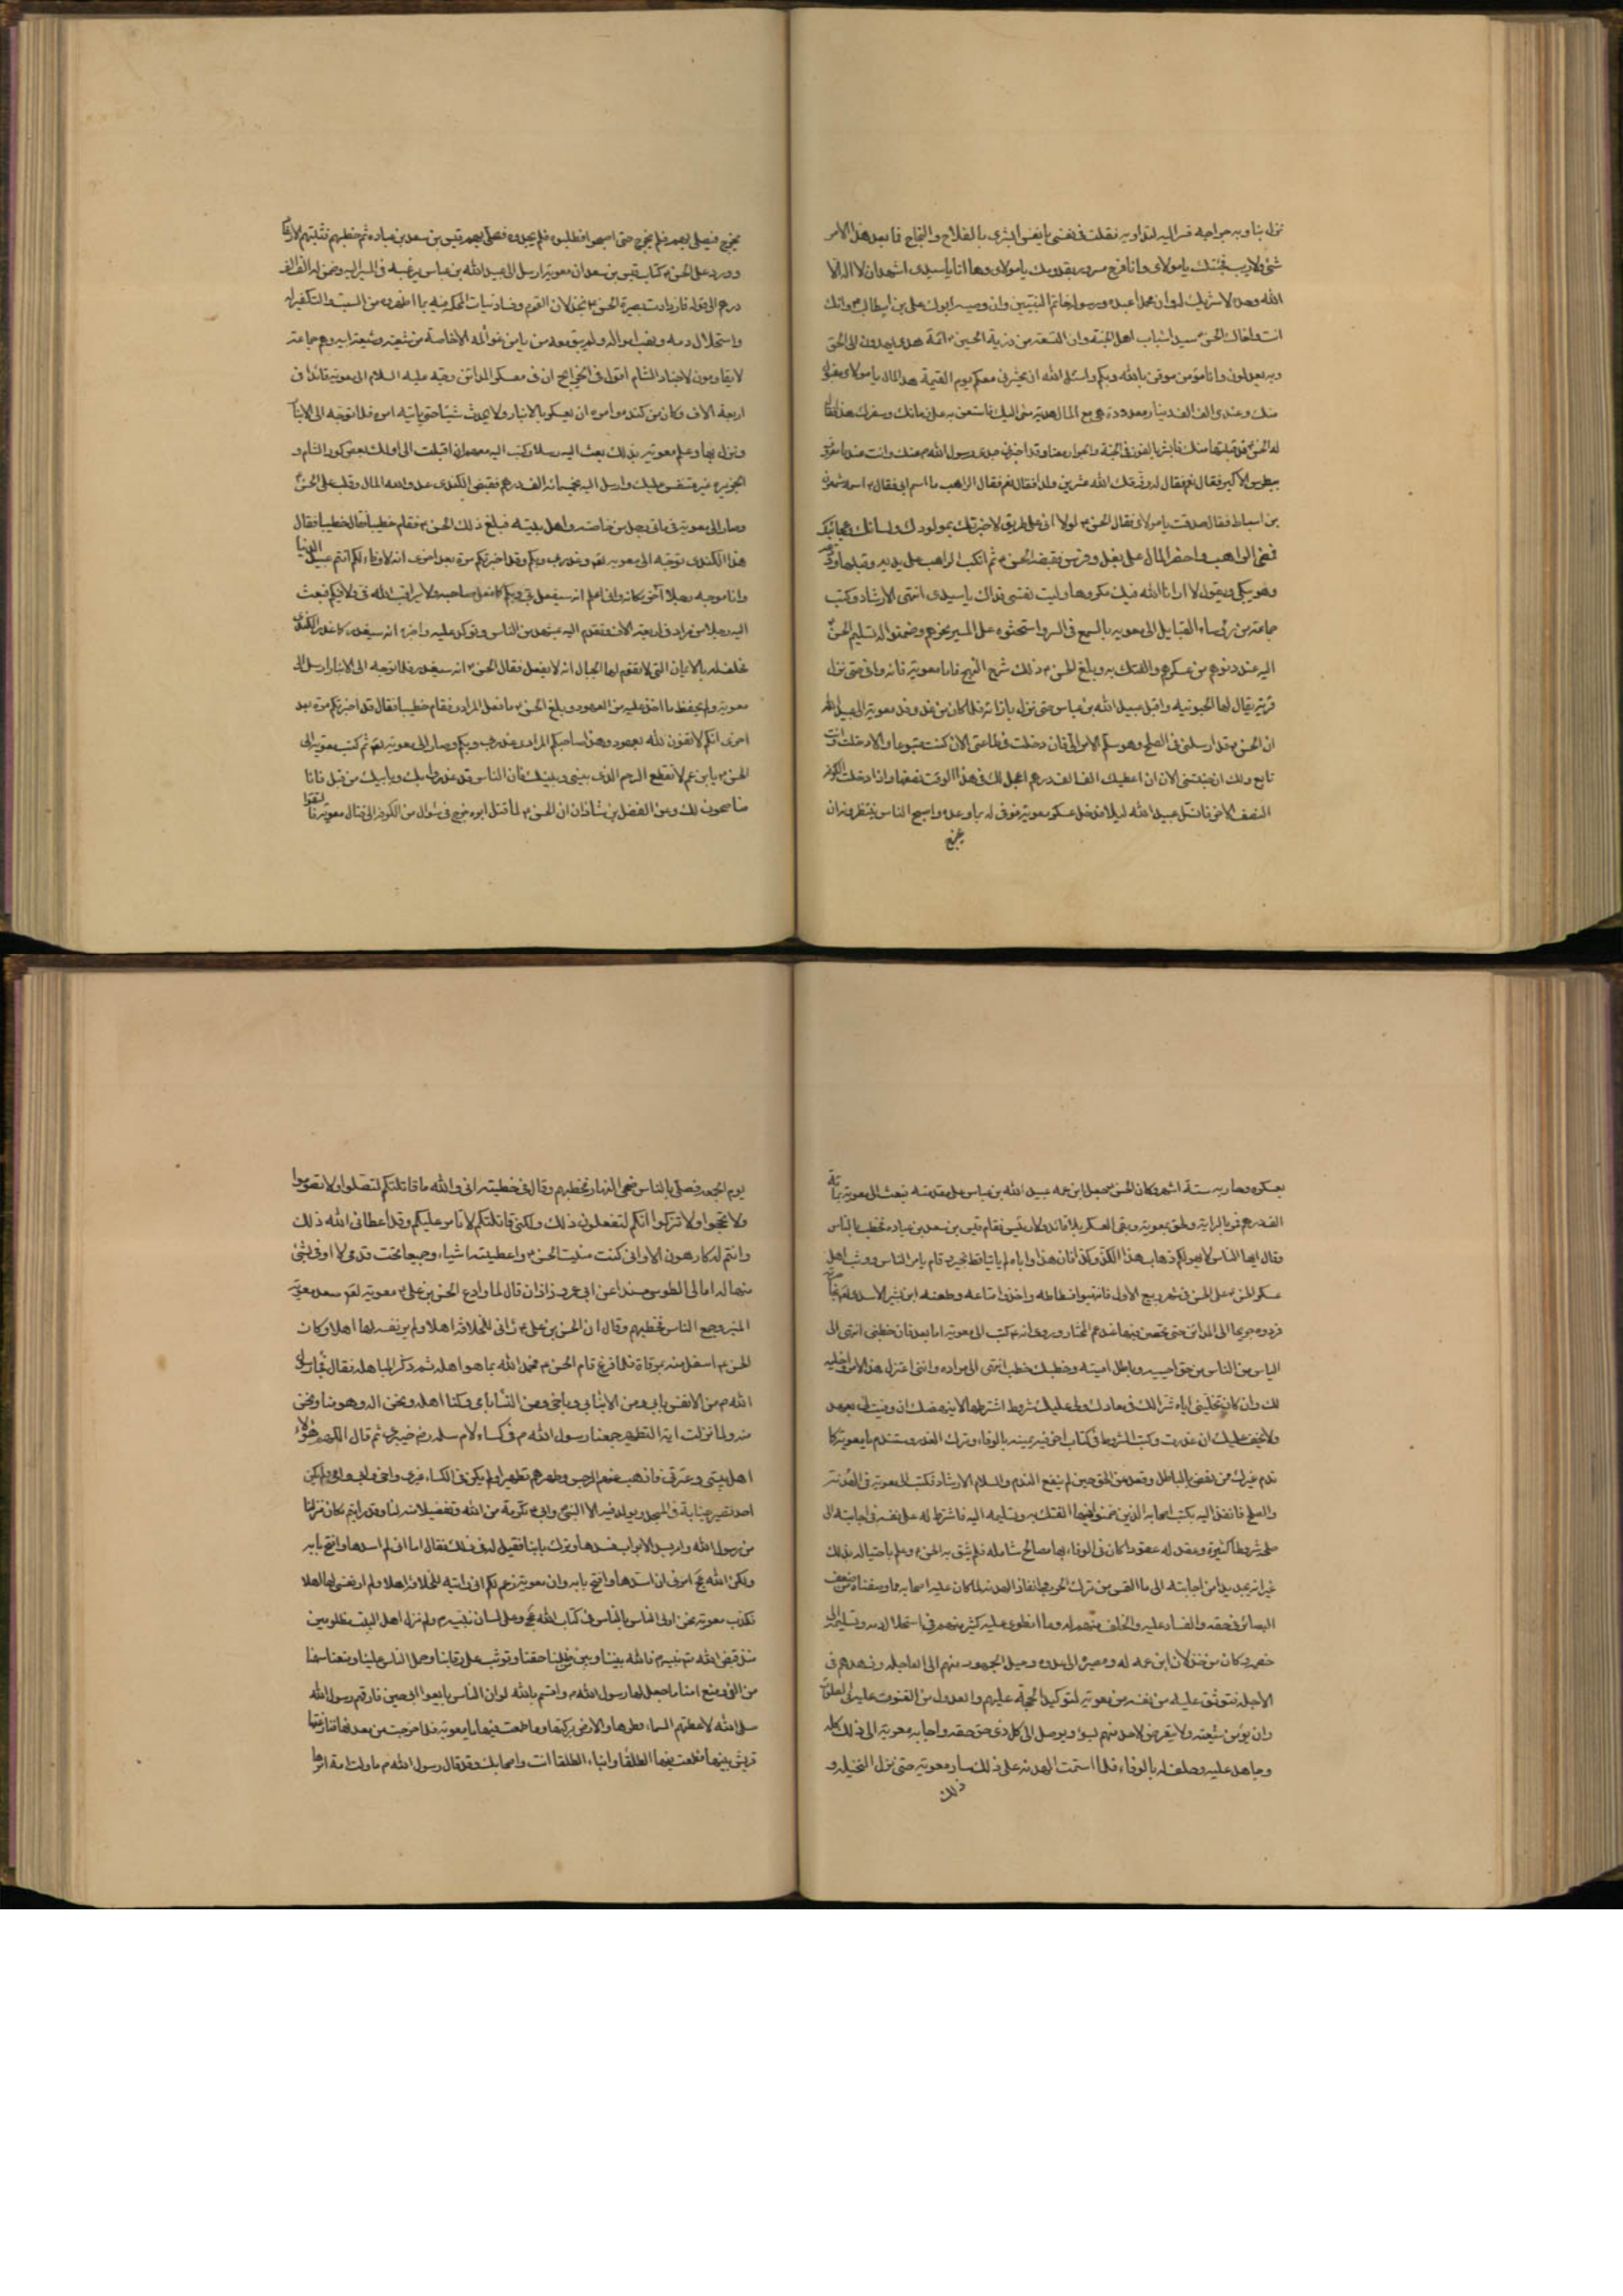 شئ ولا ريب فجئتك يا مولاى وانا فرح مسرور بقدومك يا مولاى وها انا يا سيدى اشهد ان لا اله الا
الله وحده لا شريك له وان محمدا عبده ورسوله خاتم النبيين وان وصيه ابوك على بن ابيطالب وانك
انت واخاك الحسين سيدا شباب اهل الجنة وان التسعة من ذرية الحسين ائمة هدى يهدون الى الحق
وبه يعدلون وانا مؤمن موقن بالله وبكم واسئل الله ان يحشرنى معكم يوم القيمة هذا المال يا مولاى
منك وعندى الف الف دينار معدودة هى جميع المال هدية منى اليك فاستعن به على زمانك وسفرك هذا فقال
بن اسباط فقال صدقت يا مولاى فقال الحسن لولا انى على طريق لاخبرتك بمولودك ولسانك
فمضى الراهب واحضر المال على بغل وفرس فقبضه الحسن ثم انكب الراهب على يديه وقبلها
وهو يبكى ويقول لا ارانا الله فيك مكروها وليت نفسى فداك يا سيدى انتهى الارشاد وكتب
جماعة من رؤساء القبايل الى معوية بالسمع فى السر واستحثوه على المسير نحوهم وضمنوا له تسليم الحسن
اليه عند دنوهم من عسكرهم والفتك به وبلغ الحسن ذلك شرح النهج فاما معوية فانه وافى حتى نزل
قرية يقال لها الحبونية واقبل عبيد الله بن عباس حتى نزل بازائه فلما كان من غد وجه معوية الى عبيد الله
ان الحسن قد ارسلنى فى الصلح وهو مسلم الامر الى فان دخلت فى طاعتى الان كنت متبوعا والا دخلت وانت
تابع ولك ان جئتنى الان ان اعطيك الف الف درهم اعجل لك فى هذا الوقت نصفها واذا دخلت الكوفة
النصف الاخر فانسل عبيد الله ليلا فدخل عسكر معوية فوفى له بما وعده واصبح الناس ينتظرونه ان
يخرج
يخرج فيصلى بهم فلم يخرج حتى اصبحوا فطلبوه فلم يجدوه فصلى بهم قيس بن سعد بن عباده ثم خطبهم فثبتهم
وورد على الحسن كتاب قيس بن سعد ان معوية ارسل الى عبيد الله بن عباس يرغبه فى المسير اليه وضمن له الف الف
درهم الى قوله فازدادت بصيرة الحسن بخذلان القوم وفساد نيات المحكمة فيه بما اظهروه من السب والتكفير له
واستحلال دمه ونهب امواله ولم يبق معه من يامن غوائله الا خاصة من شيعته وشيعة ابيه وهم جماعة
لا يقاومون لاجناد الشام اقول فى الخرايج ان فى معسكر المدائن وجه عليه السلام الى معوية قائدا فى
اربعة الاف وكان من كنده وامره ان يعسكر بالانبار ولا يحدث شيئا حتى ياتيه امره فلما توجه الى الانبار
ونزل بها وعلم معوية بذلك بعث اليه رسلا وكتب اليه معهم ان اقبلت الى اولك بعض كور الشام و
الجزيره غير منفس عليك وارسل اليه بخمسمائة الف درهم فقبض الكندى عدو الله المال وقلب على الحسن
وصار الى معوية فى مائى رجل من خاصته واهل بيته فبلغ ذلك الحسن فقام خطيبا فقال
هذا الكندى توجه الى معوية وغدر بى وبكم وقد اخبرتكم مرة بعد اخرى انه لا وفاء لكم انتم عبيد الدنيا
وانا موجه رجلا آخر مكانه وانى اعلم انه سيفعل بى وبكم كما فعل صاحبه ولا يراقب الله فى ولا فيكم فبعث
اليه رجلا من مراد فى اربعة الاف وتقدم اليه بمشهد من الناس وتوكد عليه واخبره انه سيغدر كما غدر الكندى
فحلف له بالايمان التى لا تقوم لها الجبال انه لا يفعل فقال الحسن انه سيغدر فلما توجه الى الانبار ارسل الى
معوية ولم يحفظ ما اخذ عليه من العهود وبلغ الحسن ما فعل المرادى فقام خطيبا فقال قد اخبرتكم مرة بعد
اخرى انكم لا تفون لله بعهود وهذا صاحبكم المرادى غدر بى وبكم وصار الى معوية ثم كتب معوية الى
الحسن يا بن عم لا تقطع الرحم الذى بينى وبينك فان الناس قد غدروا بك وبابيك من قبل
مناصحون لك وعن الفضل بن شاذان ان الحسن لما قتل ابوه خرج فى شوال من الكوفة الى قتال معوية فالتقوا
بعسكره وحاربه ستة اشهر وكان الحسن جعل ابن عمه عبيد الله بن عباس على مقدمته فبعث اليه معوية بمائة
الف درهم فمر بالراية ولحق بمعوية وبقى العسكر بلا قائد ولا رئيس فقام قيس بن سعد بن عباده فخطب بالناس
وقال ايها الناس لا يهولنكم ذهاب هذا الكذا وكذا فان هذا واباه لم ياتيا قط بخير وقام بامر الناس ووثب اهل
عسكر الحسن على الحسن فى شهر ربيع الاول فانتهبوا فسطاطه واخذوا متاعه وطعنه ابن بشير الاسدى
فردوه جريحا الى المدائن حتى تحصن فيها عند عم المختار وروى انه كتب الى معوية اما بعد فان خطبى انتهى الى
الياس من الناس من حق احييه وباطل اميته وخطبك خطب انتهى الى مراده واننى اعتزل هذا الامر واخليه
لك وان كان تخليتى اياه شرا لك فى معادك ولى عليك شروط اشترطها لا ينهضك ان وفيت لى بعهد
ولا تخف عليك ان غدرت وكتب الشروط فى كتاب اخر فيه يمينه بالوفاء وترك الغدر وستندم يا معوية كما
ندم غيرك ممن نهض بالباطل وقعد عن الحق حين لم ينفع الندم والسلام الارشاد فكتب اليه معوية فى الهدنة
والصلح فانفذ اليه بكتب اصحابه الذين ضمنوا فيها الفتك به وتسليمه اليه فاشترط له على نفسه فى اجابته الى
صلحه شروطا كثيرة وعقد له عقودا كان فى الوفاء بها مصالح شامله فلم يثق به الحسن وعلم باحتياله بذلك
غير انه لم يجد بدا من اجابته الى ما التمس من ترك الحرب وانفاذ الهدنة لما كان عليه اصحابه مما وصفناه من ضعف
البصائر فى حقه والفساد عليه والخلف منهم له وما انطوى عليه كثير منهم فى استحلال دمه وتسليمه الى
خصمه وكان من خذلان ابن عمه له ومصيره الى عدوه وميل الجمهور منهم الى العاجله وزهدهم فى
الاجله فتوثق عليه من نفسه من معوية لتوكيد الحجة عليهم والعدول من القنوت عليه فى الصلوات
وان يؤمن شيعته ولا يتعرض لاحد منهم بسوء ويوصل الى كل ذى حق حقه واجابه معوية الى ذلك كله
وعاهد عليه وحلف له بالوفاء فلما استتمت الهدنة على ذلك سار معوية حتى نزل النخيله و
ذلك
يوم الجمعه فصلى بالناس ضحى النهار فخطبهم وقال فى خطبته انى والله ما قاتلتكم لتصلوا ولا تصوموا
ولا تحجوا ولا تزكوا انكم لتفعلون ذلك ولكنى قاتلتكم لا تامر عليكم وقد اعطانى الله ذلك
وانتم له كارهون الا وانى كنت منيت الحسن واعطيته اشياء وجميعا تحت قدمى لا اوفى بشئ
منها له امالى الطوسى مسندا عن ابى عمر وزاذان قال لما وادع الحسن بن على معوية صعد معوية
المنبر وجمع الناس فخطبهم وقال ان الحسن بن على رانى للخلافة اهلا ولم ير نفسه لها اهلا وكان
الحسن اسفل منه بمرقاة فلما فرغ قام الحسن فحمد الله بما هو اهله ثم ذكر المباهله فقال فجاء رسول
الله من الانفس بابى ومن الابناء بى وباخى ومن النساء بامى وكنا اهله ونحن اله وهو منا ونحن
منه ولما نزلت اية التطهير جمعنا رسول الله فى كساء لام سلمه رض خيبرى ثم قال اللهم هؤلاء
اهل بيتى وعترتى فاذهب عنهم الرجس وطهرهم تطهيرا ولم يكن فى الكساء غيرى واخى وابى وامى ولم يكن
احد تصيبه جنابة فى المسجد ويولد فيه الا النبى وابى تكرمة من الله وتفضيلا منه لنا وقد رايتم مكان منزلنا
من رسول الله وامر بسد الابواب فسدها وترك بابنا فقيل له فى ذلك فقال اما انى لم اسدها وافتح بابه
ولكن الله عج امرنى ان اسدها وافتح بابه وان معوية زعم لكم انى رايته للخلافة اهلا ولم ار نفسى لها اهلا
فكذب معوية نحن اولى الناس بالناس فى كتاب الله عج وعلى لسان نبيه ولم نزل اهل البيت مظلومين
منذ قبض الله نبيه فالله بيننا وبين من ظلمنا حقنا وتوثب على رقابنا وحمل الناس علينا ومنعنا سهمنا
من الفئ ومنع امنا ما جعل لها رسول الله واقسم بالله لو ان الناس بايعوا ابى حين فارقهم رسول الله
صلى الله لاعطتهم السماء قطرها والارض بركتها وما طمعت فيها يا معوية فلما خرجت من معدنها تنازعتها
قريش بينها فطمعت فيها الطلقا وابناء الطلقا انت واصحابك وقد قال رسول الله ما ولت امة امرها